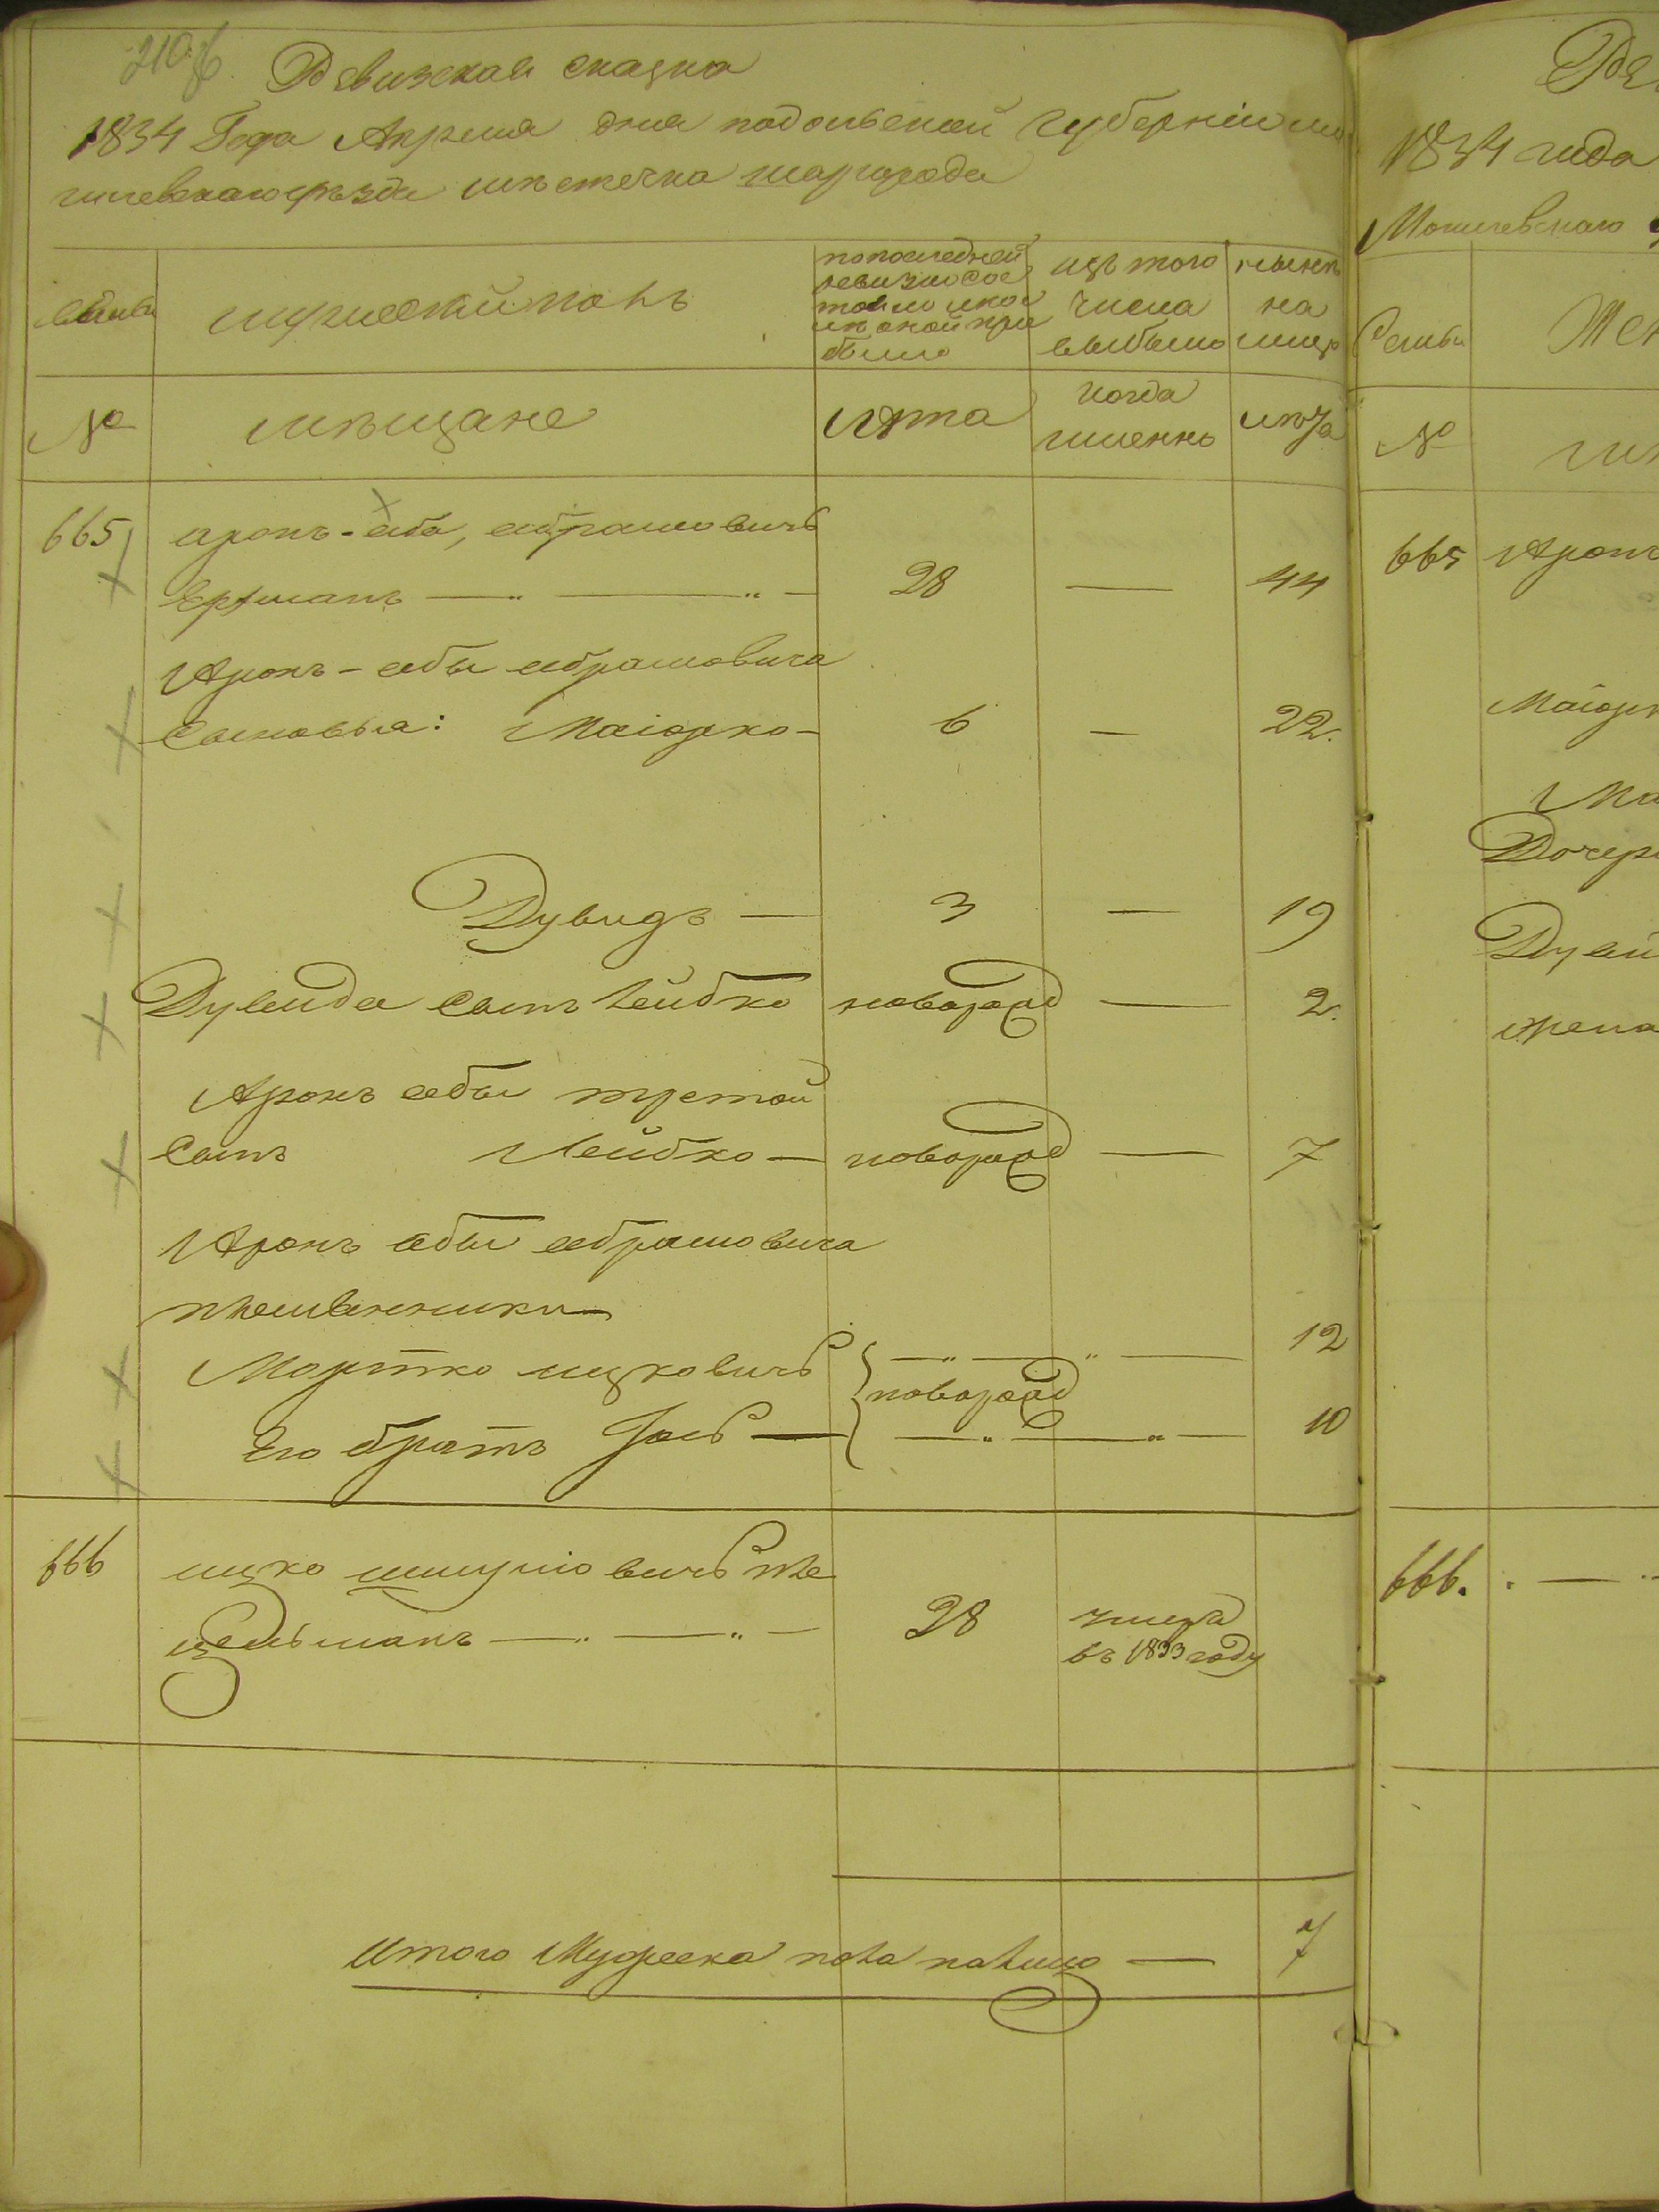 210
Ревизская сказка
1834 Года Апреля дня подольской Губерніи мо
гилевского уѣзда мѣстечка шаргорода
семьи
мужескій полъ
по последней
ревизіи сос
тояло и пос
лѣ оной при
было
изъ того
числа
выбыло
нынѣ
на
лицо
№
мѣщане
лѣта
когда
именно
лѣта
665
аронъ-аба, абрамовичъ
28 — 44
Аронъ-абы абрамовича
Сыновья: Маіорко - 6 — 22.
Дувидъ — 3 — 19
Дувида сынъ Лейбко новорожд — 2.
Аронъ абы третой
сынъ Лейбко — новорожд — 7
Аронъ абы абрамовича
племенники
Мортко ицковичъ 12
новорожд
Его братъ Іось — 10
666
ицко шмулювичъ
28
умеръ
въ 1833 году
итого Мужеска пола налицо — 7
Ре
1834 года
Могилевскаго
Семьи
Жен
№
мѣ
665 Аронъ
Маіорк
Ма
Дочерь
Дуви
жена
666.